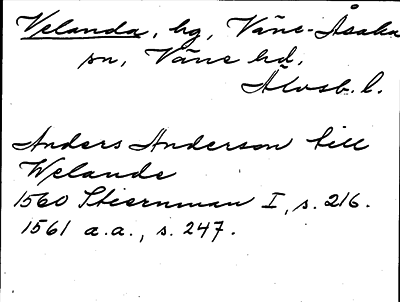 Velanda, hg, Väne-Åsaka
sn, Väne hd,
Älvsb. l.
Anders Anderson till
Welande
1560 Stiernman I, s. 216.
1561 a.a., s. 247.